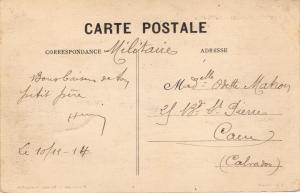 CARTE POSTALE
CORRESPONDANCE Militaire
ADRESSE
Bons baisers de ton
petit père
Le 10/11-14
Madelle Odette Matron
25 Bd St Pierre
Caen
(Calvados)